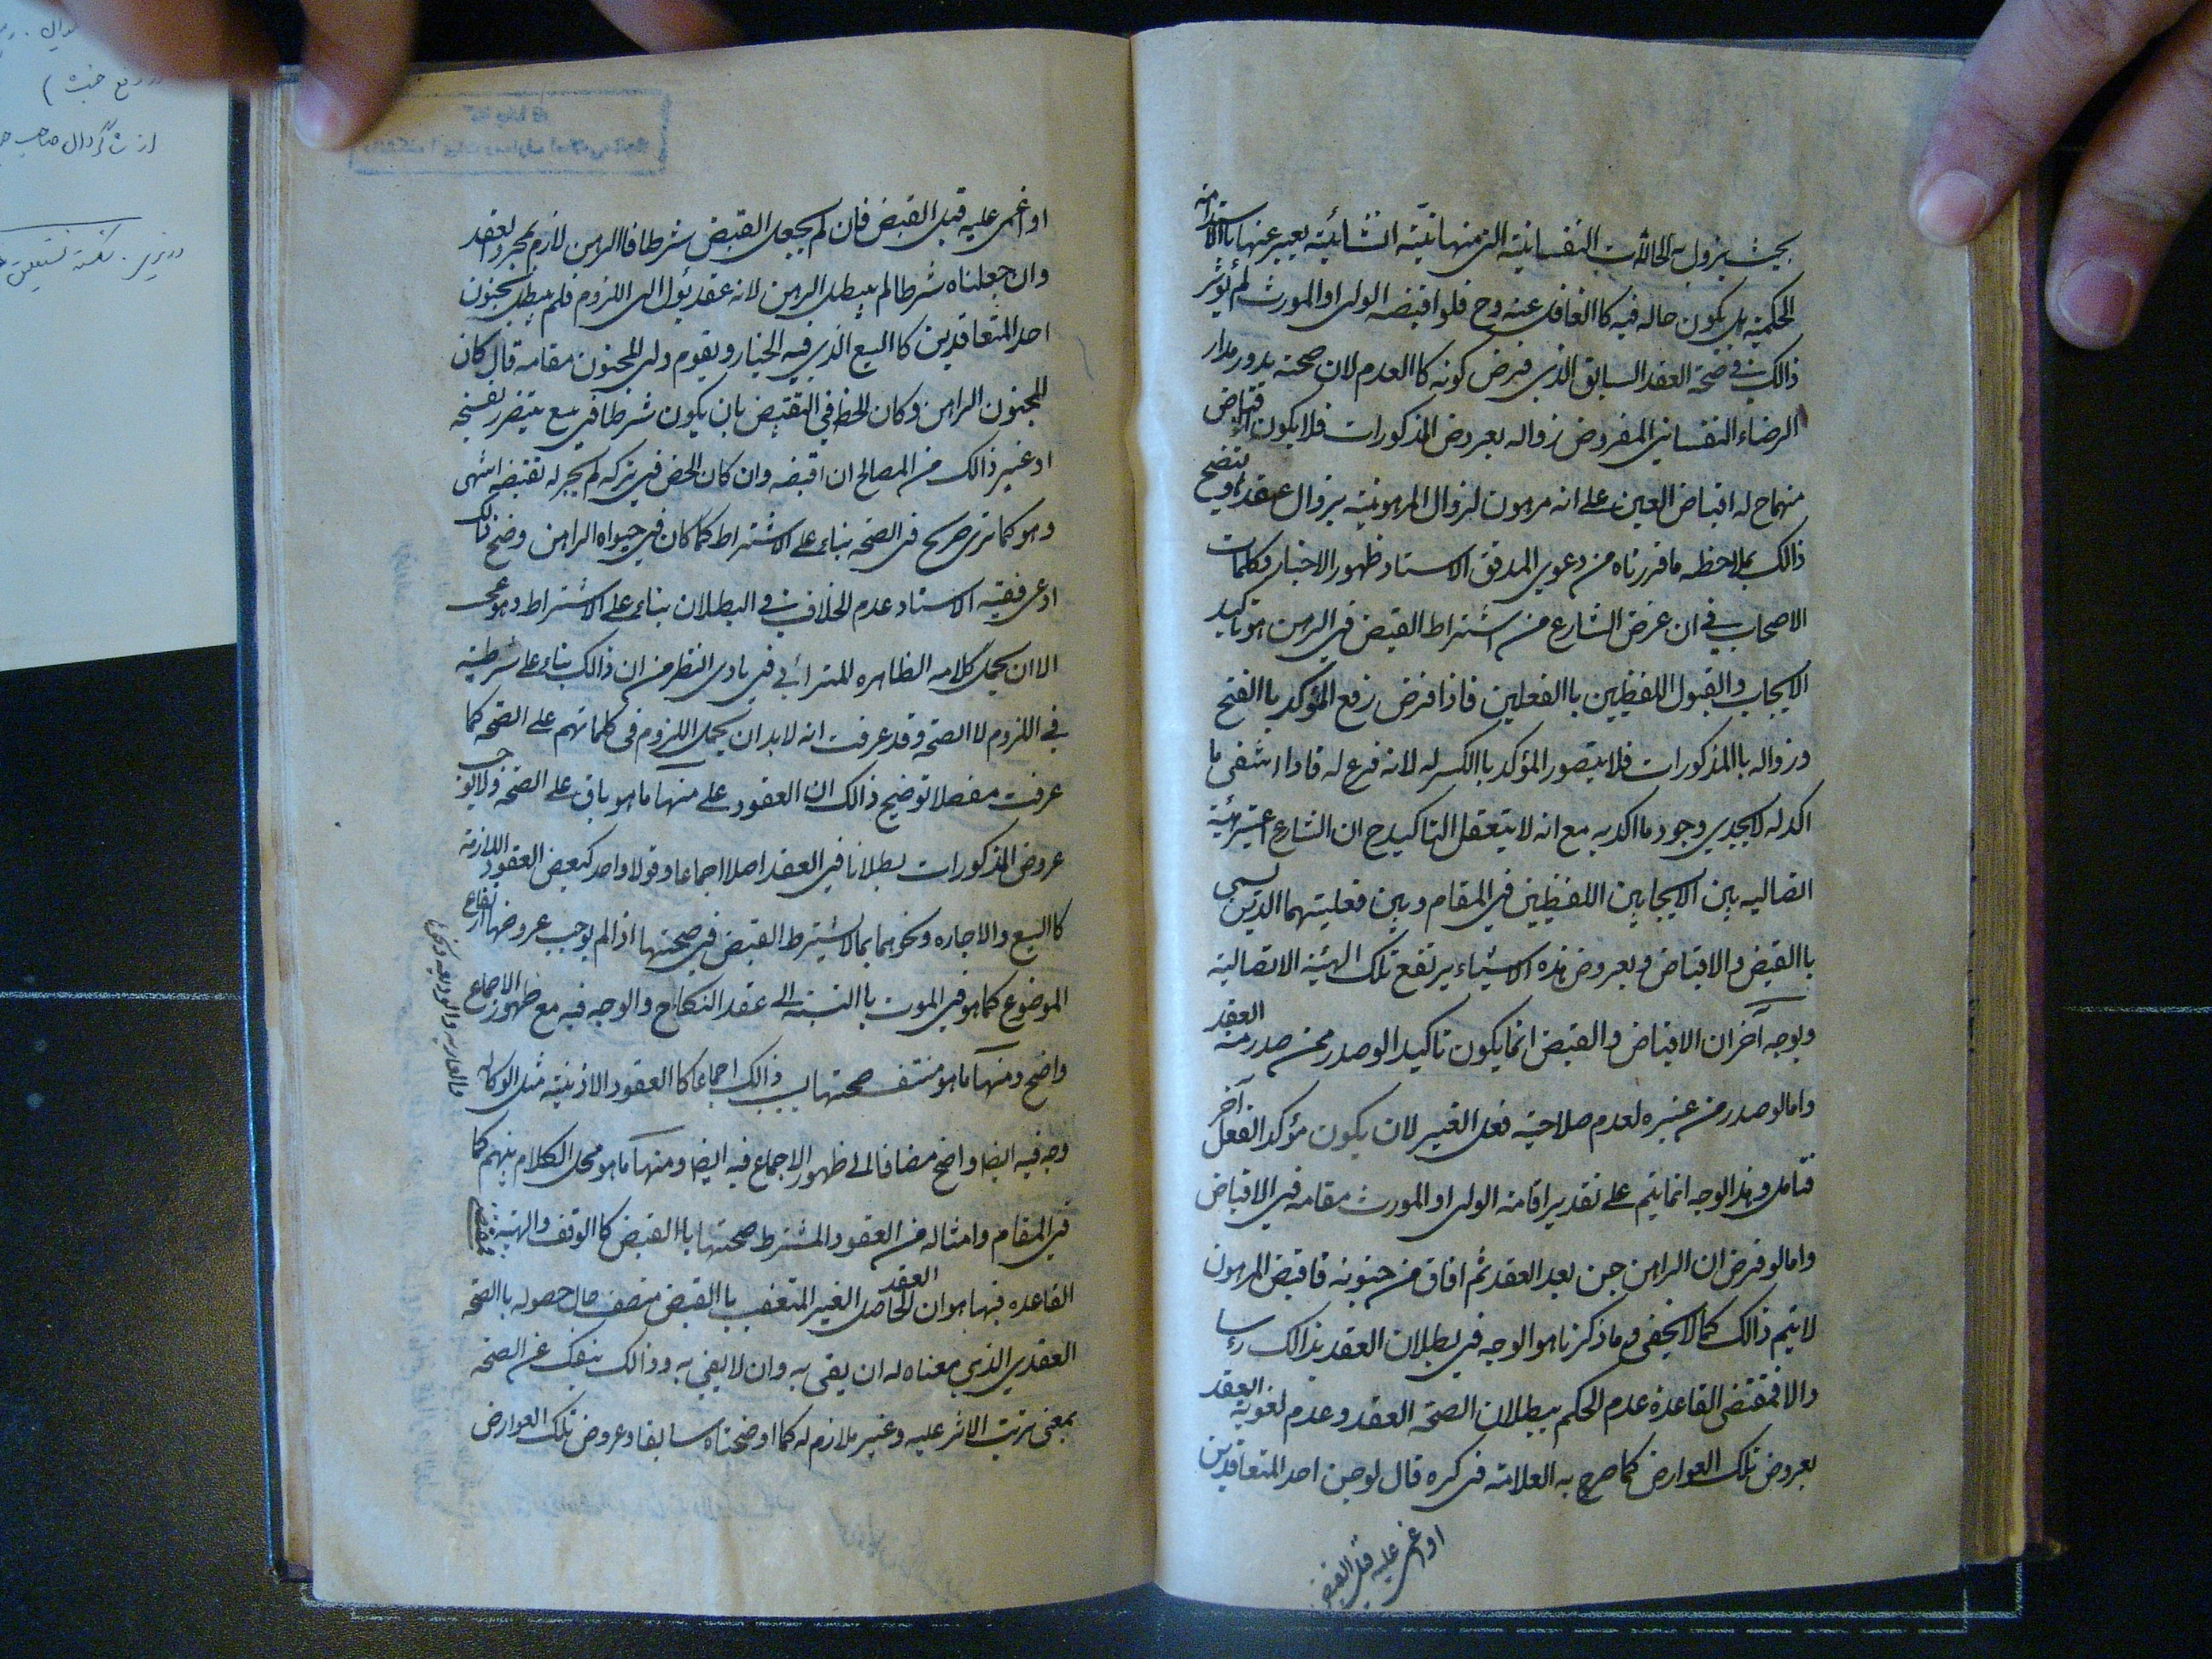 بحيث يزول به الحالات النفسانية التي منها نية انشائية يعبر عنها بالاستدامة
الحكمية بل يكون حاله فيه كالغافل عنه وح فلو اقبضه الولى او المورث لم يؤثر
ذالك في صحة العقد السابق الذي فرض كونه كاالعدم لان صحته يدور مدار
الرضاء النفساني المفروض زواله بعروض المذكورات فلا يكون اقباض
منهما ح له اقباض العين على انه مرهون لزوال المرهونية بزوال عقدها ويتضح
ذالك بملاحظه ما قررناه من دعوى المدقق الاستاد ظهور الاخبار وكلمات
الاصحاب في ان غرض الشارع من اشتراط القبض في الرهن هو تاكيد
الايجاب والقبول اللفظيين باالفعلين فاذا فرض رفع المؤكد باالفتح
وزواله باالمذكورات فلا يتصور المؤكد باالكسر له لانه فرع له فاذا انتفى ما
اكد له لا يجدي وجود ما اكد به مع انه لا يتعقل التاكيد ح ان الشارع اعتبر هيئة
اتصاليه بين الايجابين اللفظيين في المقام وبين فعليتهما الذين يسمى
باالقبض والاقباض وبعروض هذه الاشياء يرتفع تلك الهيئة الاتصالية
وبوجه آخر ان الاقباض والقبض انما يكون تاكيدا لو صدر ممن صدر منه العقد
واما لو صدر من غيره لعدم صلاحية فعل الغير لان يكون مؤكد الفعل آخر
فتامل وهذا الوجه انما يتم على تقدير اقامة الولى او المورث مقامه في الاقباض
واما لو فرض ان الراهن جن بعد العقد ثم افاق من جنونه فاقبض المرهون
لا يتم ذالك كما لا يخفى وما ذكرنا هو الوجه في بطلان العقد بذالك رسا
والا فمقتضى القاعدة عدم الحكم ببطلان الصحة العقد وعدم لغوية العقد
بعروض تلك العوارض كما صرح به العلامة في كره قال لو جن احد المتعاقدين
او اغمي عليه قبل القبض
او اغمى عليه قبل القبض فان لم يجعل القبض شرطا فاالرهن لازم بمجرد العقد
وان جعلناه شرطا لم يبطل الرهن لانه عقد يؤل الى اللزوم فلم يبطل بجنون
احد المتعاقدين كاالبيع الذي فيه الخيار ويقوم ولى المجنون مقامه قال كان
المجنون الراهن وكان الحظ في التقبيض بان يكون شرطا في بيع يتضرر بفسخه
او غير ذالك من المصالح ان اقبضه وان كان الحض في تركه لم يجز له تقبضه انتهى
وهو كما ترى صريح في الصحه بناء على الاشتراط كما كان في حيواه الراهن وضح ذالك
ادعى فقيه الاستاد عدم الخلاف في البطلان بناء على الاشتراط وهو عجب
الا ان يحمل كلامه الظاهره المترائي في بادى النظر من ان ذالك بناء على شرطية
في اللزوم لا الصحة وقد عرفت انه لابد ان يحمل اللزوم في كلماتهم على الصحة كما
عرفت مفصلا توضيح ذالك ان العقود على منها ما هو باق على الصحة ولا يوجب
عروض المذكورات بطلانا في العقد اصلا اجماعا وقولا واحد كبعض العقود اللازمة
كاالبيع والاجاره ونحوهما بما لا يشترط القبض في صحتها اذا لم يوجب عروضها ارتفاع
الموضوع كما هو في الموت باالنسبته الى عقد النكاح والوجه فيه مع ظهور الاجماع
واضح ومنها ما هو منتف صحتها ب ذالك اجماعا كاالعقود الاذنية مثل الوكاله
والعاريه والوديعه ونحوها
وجه فيه ايضا واضح مضافا الى ظهور الاجماع فيه ايضا ومنها ما هو محل الكلام بينهم كما
في المقام وامثاله من العقود المشترط صحتها باالقبض كاالوقف والهبة فمقتضى
القاعده فيها هو ان العقد الحاصل الغير المتعقب باالقبض متصف حال حصوله باالصحة
العقدي الذي معناه له ان يقى به وان لا يفي به وذالك ينفك عن الصحه
بمعنى ترتب الاثر عليه وغير ملازم له كما اوضحناه سابقا وعروض تلك العوارض
از شاگردان صاحب